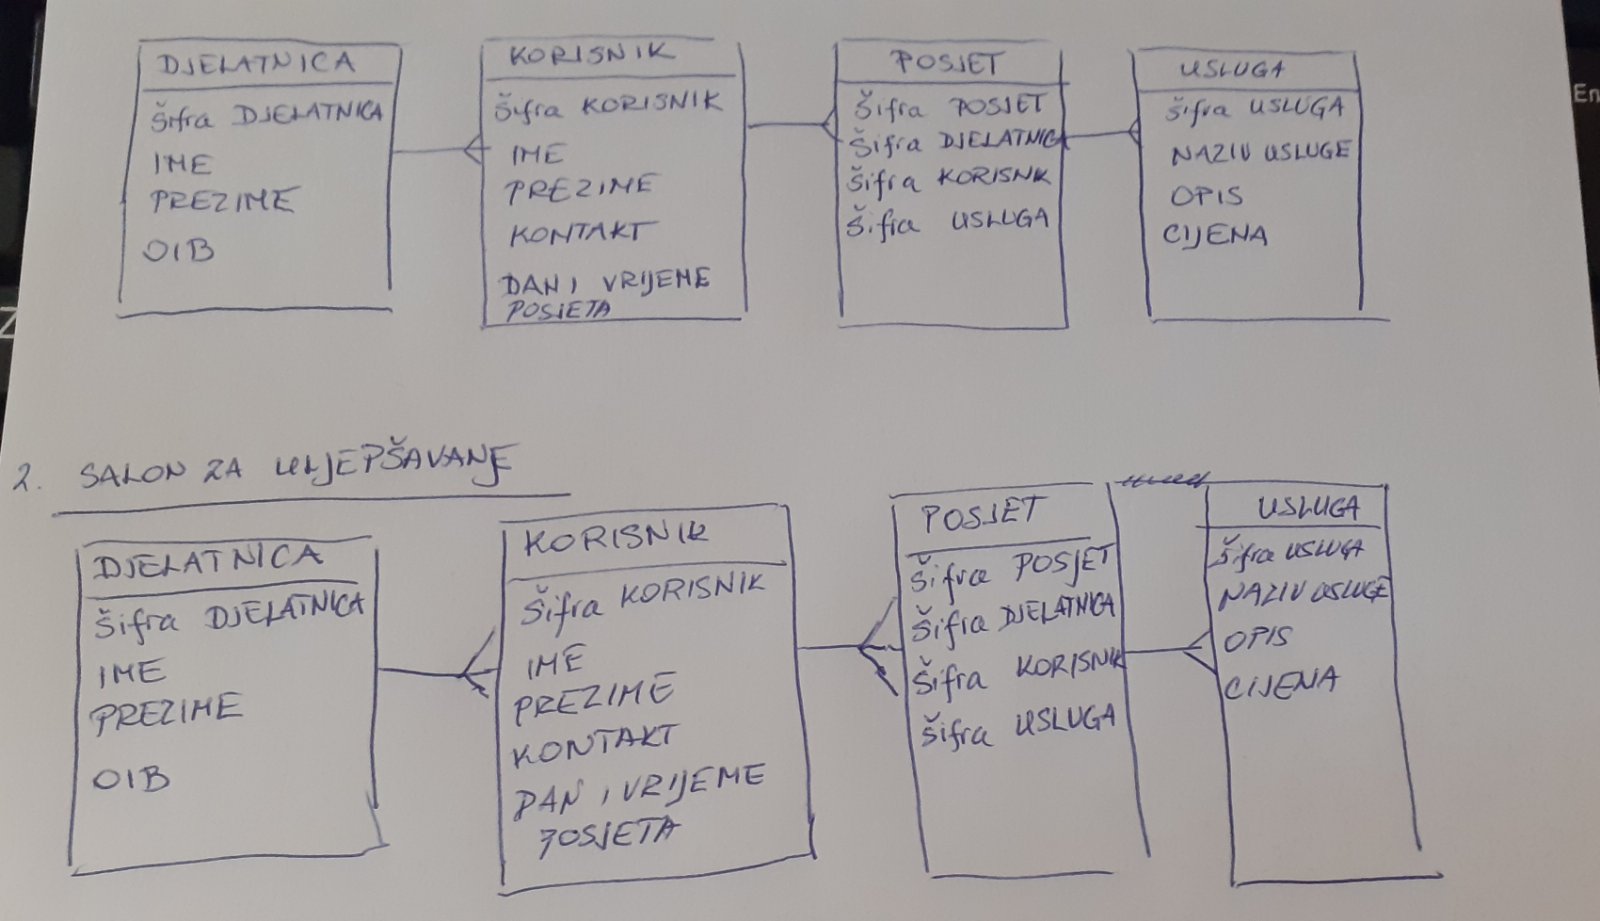 DJELATNICA
Šifra DJELATNICA
IME
PREZIME
OIB
KORISNIK
Šifra KORISNIK
IME
PREZIME
KONTAKT
DAN I VRIJEME
POSJETA
POSJET
Šifra POSJET
Šifra DJELATNICA
Šifra KORISNK
Šifra USLUGA
USLUGA
Šifra USLUGA
NAZIV USLUGE
OPIS
CIJENA
2. SALON ZA ULJEPŠAVANJE
DJELATNICA
Šifra DJELATNICA
IME
PREZIME
OIB
KORISNIK
Šifra KORISNIK
IME
PREZIME
KONTAKT
DAN I VRIJEME
POSJETA
POSJET
Šifra POSJET
Šifra DJELATNICA
Šifra KORISNIK
Šifra USLUGA
USLUGA
Šifra USLUGA
NAZIV USLUGE
OPIS
CIJENA
En
Z